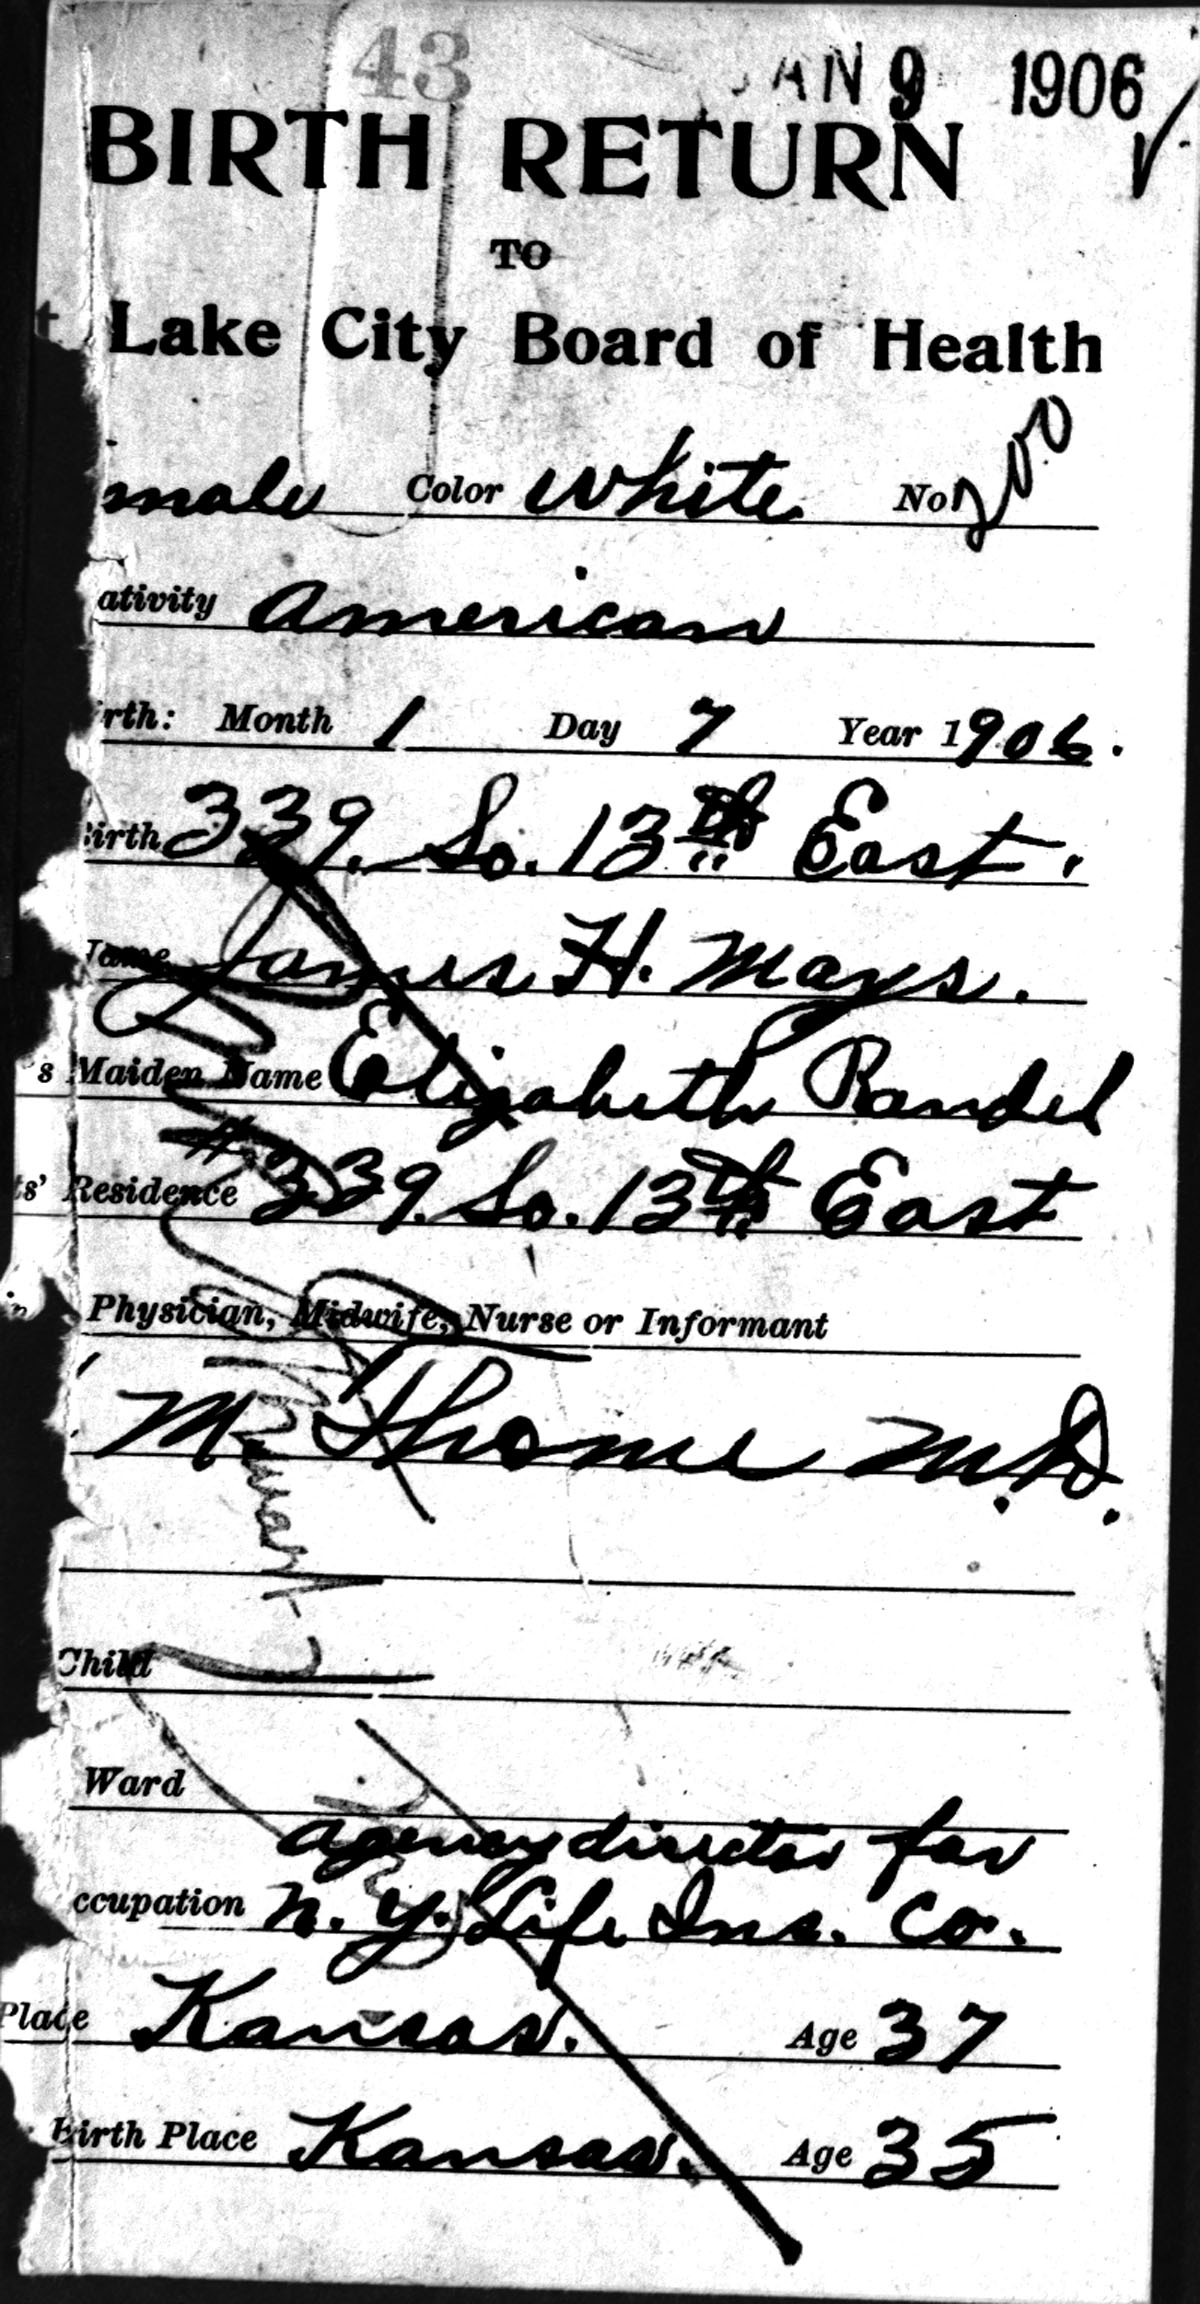 43
JAN 9 1906
BIRTH RETURN
TO
t Lake City Board of Health
male Color White No 200
ativity American
rth: Month 1 Day 7 Year 1906.
irth 339. So. 13th East.
Name James H. Mays.
s Maiden Name Elizabeth Randel
ts' Residence #339. So. 13th East
Physician, Midwife, Nurse or Informant
M. Thome M.D.
Child
Ward
agency director for
ccupation N. Y. Life Ins. Co.
Place Kansas. Age 37
Birth Place Kansas. Age 35